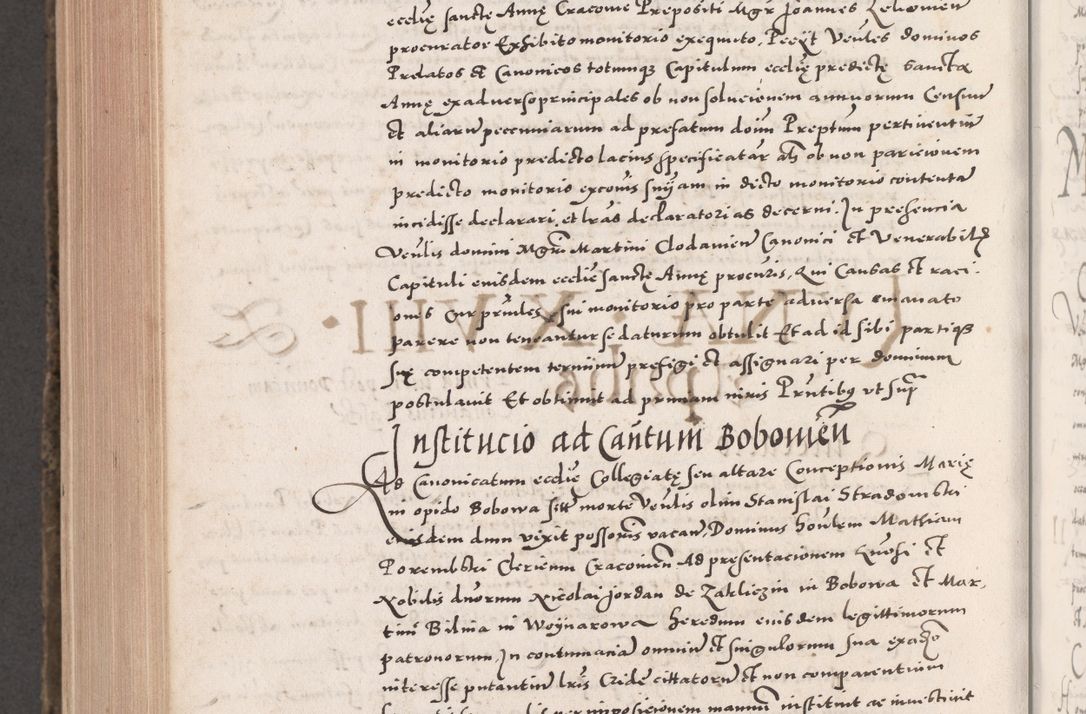 ecclię sanctę Annę Cracovie Prepositi Mgr Joannes Zelowien
procurator Exhibito monitorio exequuto, Petiit Venles dominos
Prelatos et Canonicos totumqz Capitulum ecclię predictę Sancta
Annę ex adverso principales ob non solucionem annuorum Censuum
et aliarum peccuniarum ad prefatum dnum Preptum pertinentium
in monitorio predicto lacius specificatar als ob non paricionem
predicto monitorio exconis sniam in dicto monitorio contenta
incidisse declarari, et lras declaratorias decerni. In presencia
Venlis domini Mgri Martini Clodawien Canonici et Venerabilis
Capituli eiusdem ecclie Sanctę Annę procuris, Qui Causas et raci
ones Cur prniles sui monitorio pro parte adversa emanato
parere non teneantur se daturum obtulit Et ad id sibi partiqz
suę competentem terminum prefigi et assignari per dominum
postulavit Et obtinuit ad primam iuris Prntibus ut supra
Institucio ad Cantum Bobowień
Ad Canonicatum ecclię Collegiatę seu altare Conceptionis Marię
in opido Bobowa sitt morte Venlis olim Stanislai Stradomski
eiusdem dum vixit possoris vacan, Dominus honlem Mathiam
Porembski Clericum Cracovien Ad presentacionem Gnosi et
Nobilis dnorum Nicolai Jordan de Zakliczin in Bobowa et Mar
tini Bilina in Woynarowa heredum eiusdem legittimorum
patronorum, In contumacia omnium et singulorum sua exacto
interesse putantium lris Cride cittatorum et non comparentium
per imposicionem manum instituit ac investivit